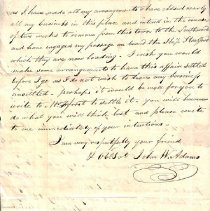 as I have made all my arrangements to have closed nearly
all my business in this place and intend in the course
of two weeks to remove from this town to the Southward
and have engaged my passage on board the Ship
which they are now loading. I wish you would
make some arrangements to have this affair settled
before I go as I do not wish to leave any business
unsettled. perhaps it would be well for you to
write to to settle it. you will however
do what you will think best and please write
to me immediately of your intentions.
I am very respectfully your friend
John H. Adams